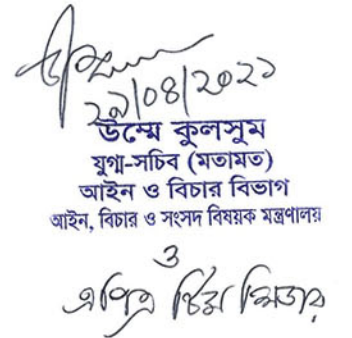 ২৯/০৪/২০২১
উম্মে কুলসুম
যুগ্ম-সচিব (মতামত)
আইন ও বিচার বিভাগ
আইন, বিচার ও সংসদ বিষয়ক মন্ত্রণালয়
ও
এপিএ টিম লিডার